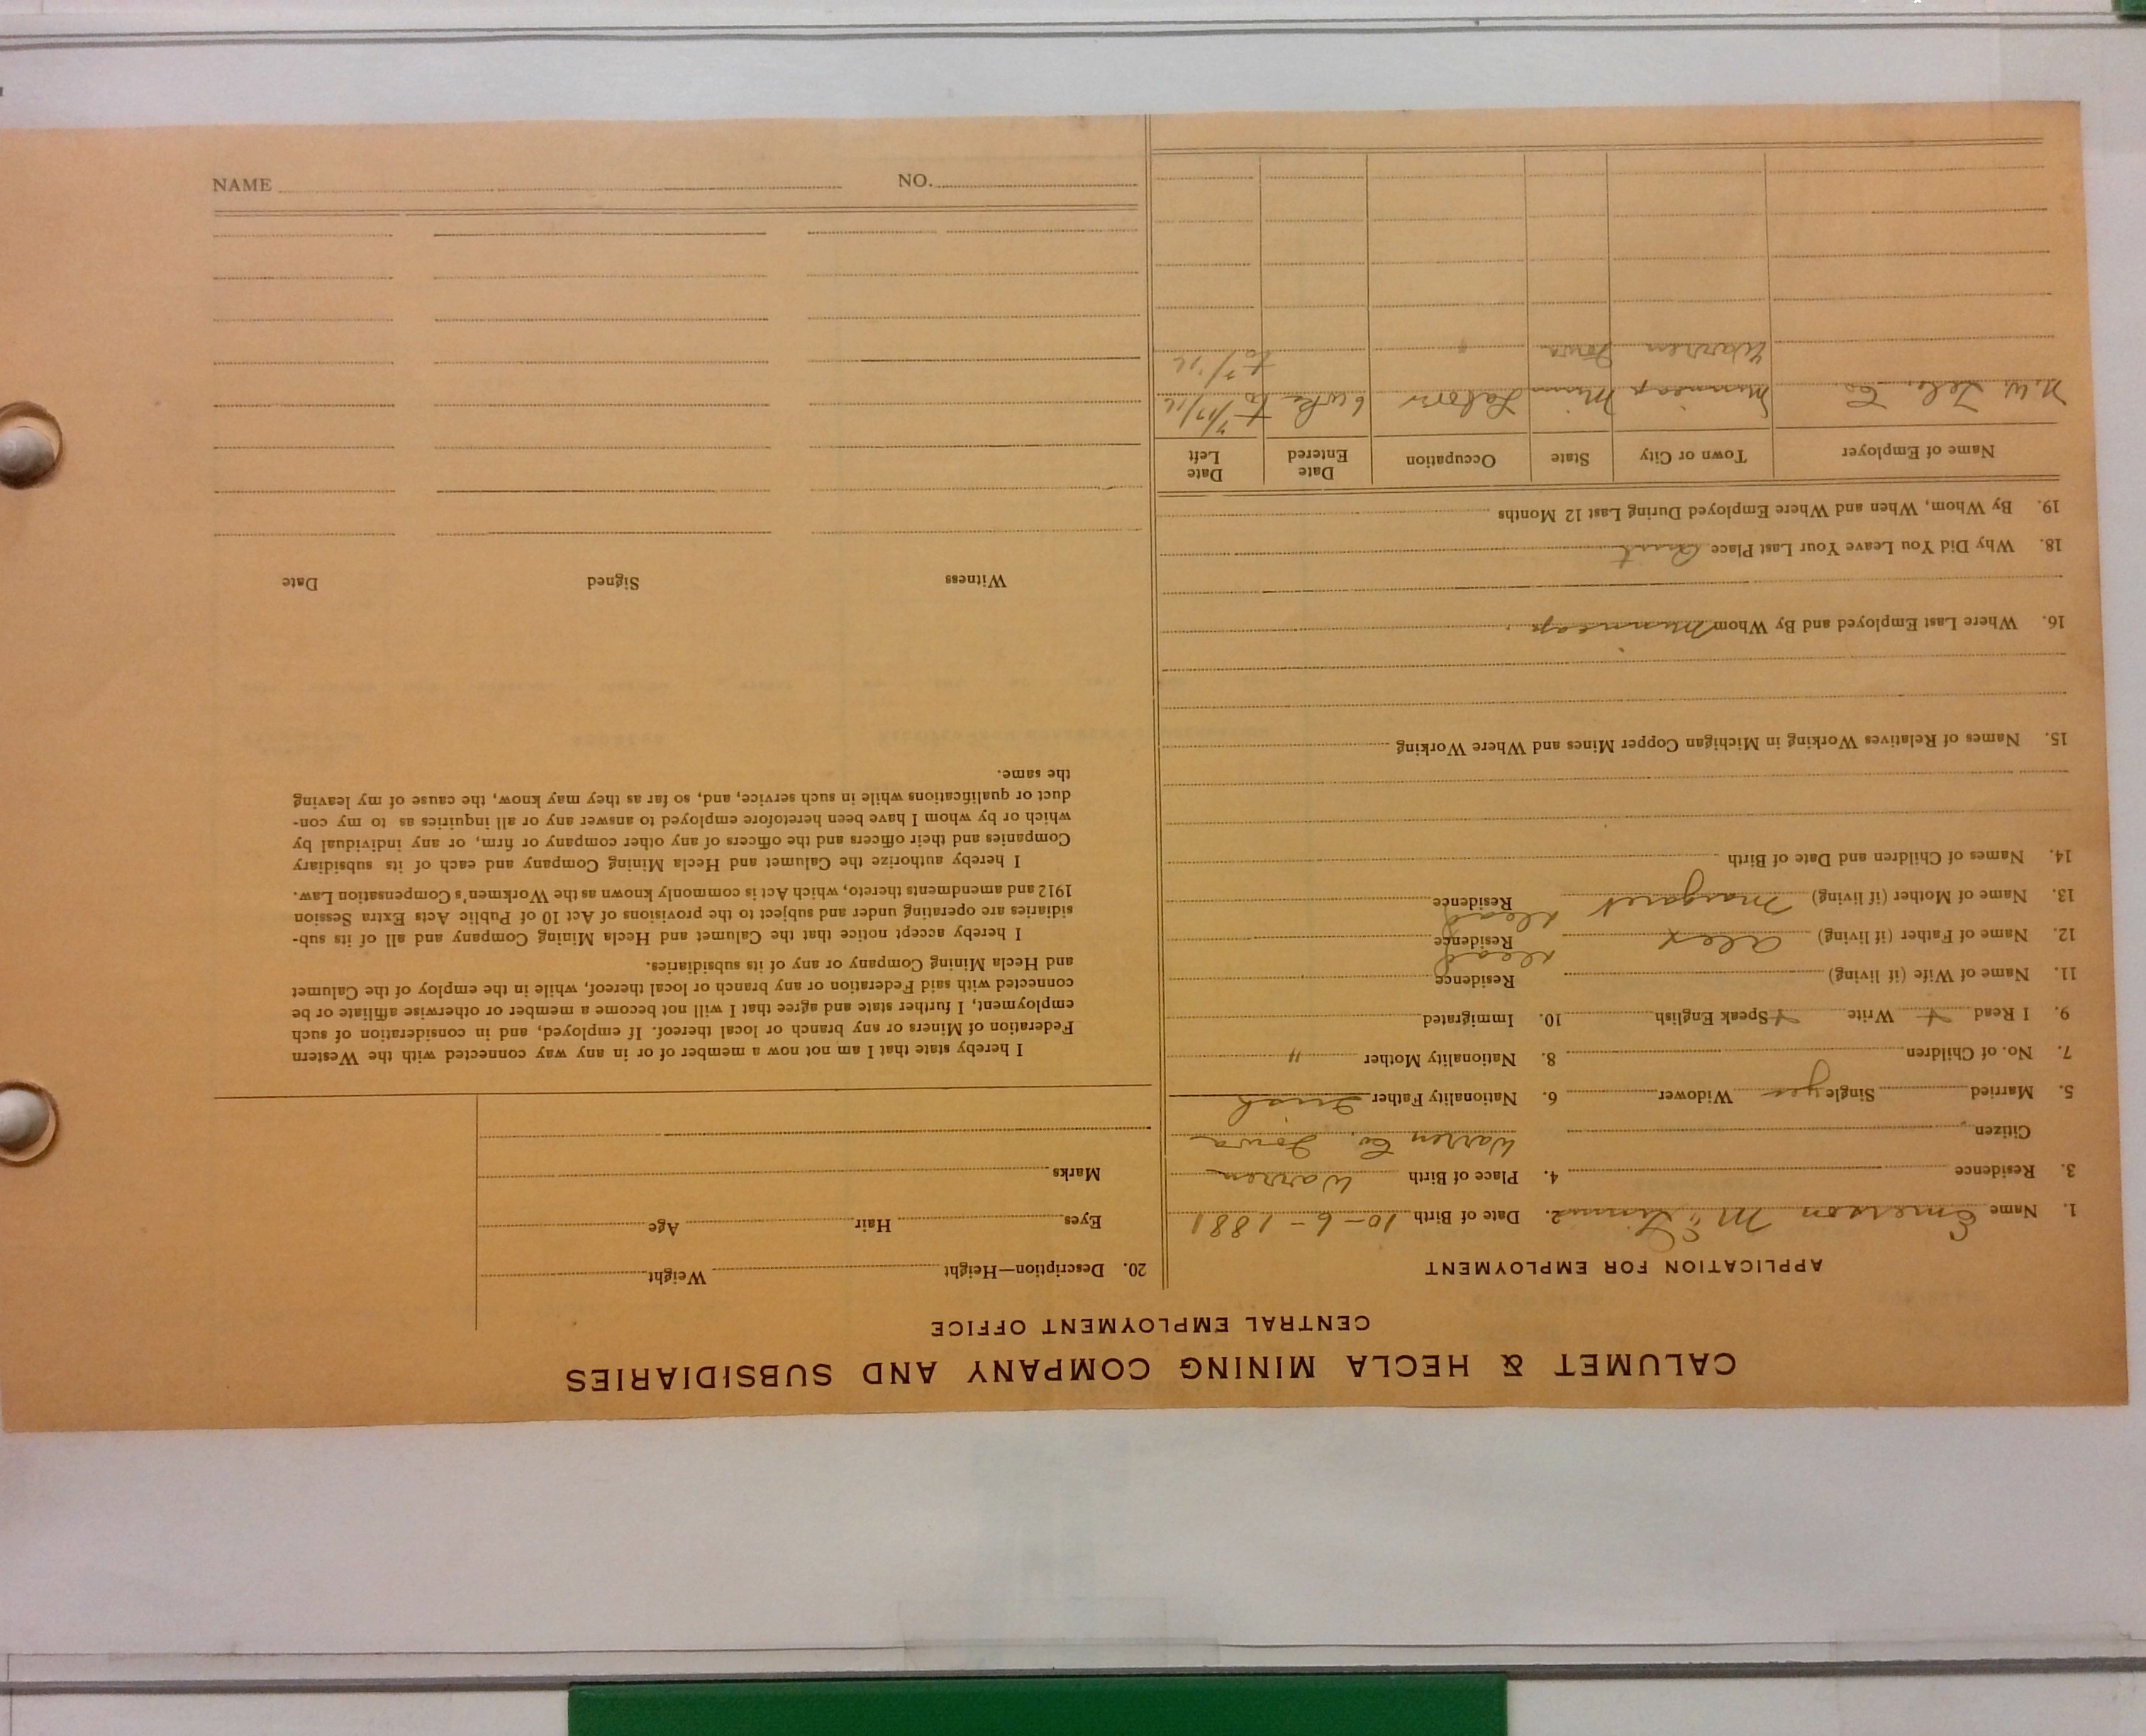 CALUMET & HECLA MINING COMPANY AND SUBSIDIARIES
CENTRAL EMPLOYMENT OFFICE
APPLICATION FOR EMPLOYMENT
1. Name Emerson 2. Date of Birth 10-6-1881
3. Residence 4. Place of Birth Warren
Citizen Warren Co. Iowa
5. Married Single yes Widower 6. Nationality Father Irish
7. No. of Children 8. Nationality Mother "
9. I Read + Write + Speak English 10. Immigrated
11. Name of Wife (if living) Residence
12. Name of Father (if living) Alex dead Residence
13. Name of Mother (if living) Margaret dead Residence
14. Names of Children and Date of Birth
15. Names of Relatives Working in Michigan Copper Mines and Where Working
16. Where Last Employed and By Whom Minneap
18. Why Did You Leave Your Last Place Quit
19. By Whom, When and Where Employed During Last 12 Months
Name of Employer Town or City State Occupation Date Entered Date Left
N.W. Tele. Co. Minneap Minn Labor 6 wks to 7/17/16
Warren Iowa " to
20. Description—Height Weight
Eyes Hair Age
Marks
I hereby state that I am not now a member of or in any way connected with the Western
Federation of Miners or any branch or local thereof. If employed, and in consideration of such
employment, I further state and agree that I will not become a member or otherwise affiliate or be
connected with said Federation or any branch or local thereof, while in the employ of the Calumet
and Hecla Mining Company or any of its subsidiaries.
I hereby accept notice that the Calumet and Hecla Mining Company and all of its sub-
sidiaries are operating under and subject to the provisions of Act 10 of Public Acts Extra Session
1912 and amendments thereto, which Act is commonly known as the Workmen's Compensation Law.
I hereby authorize the Calumet and Hecla Mining Company and each of its subsidiary
Companies and their officers and the officers of any other company or firm, or any individual by
which or by whom I have been heretofore employed to answer any or all inquiries as to my con-
duct or qualifications while in such service, and, so far as they may know, the cause of my leaving
the same.
Witness Signed Date
NAME NO.